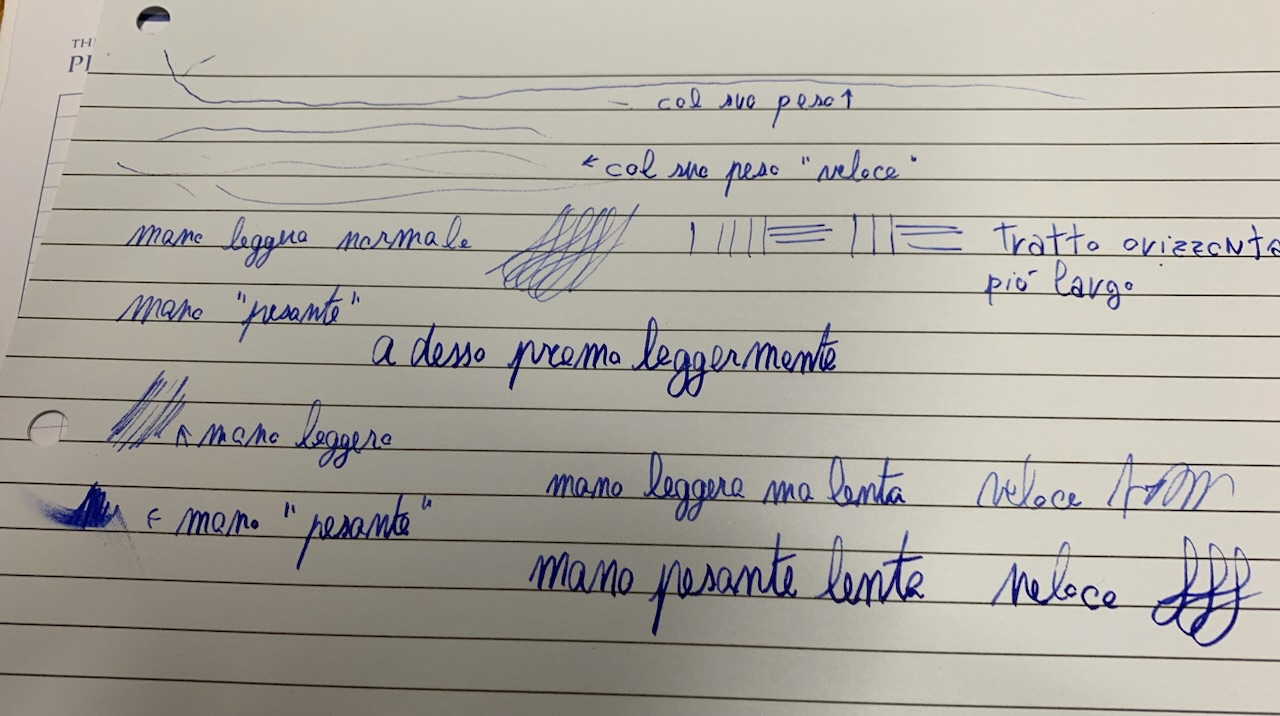 TH
PI
col suo peso↑
← col suo peso "veloce"
mano leggera normale
Tratto orizzonta
più largo
mano "pesante"
adesso premo leggermente
↖ mano leggera
mano leggera ma lenta veloce
← mano "pesante"
mano pesante lenta veloce